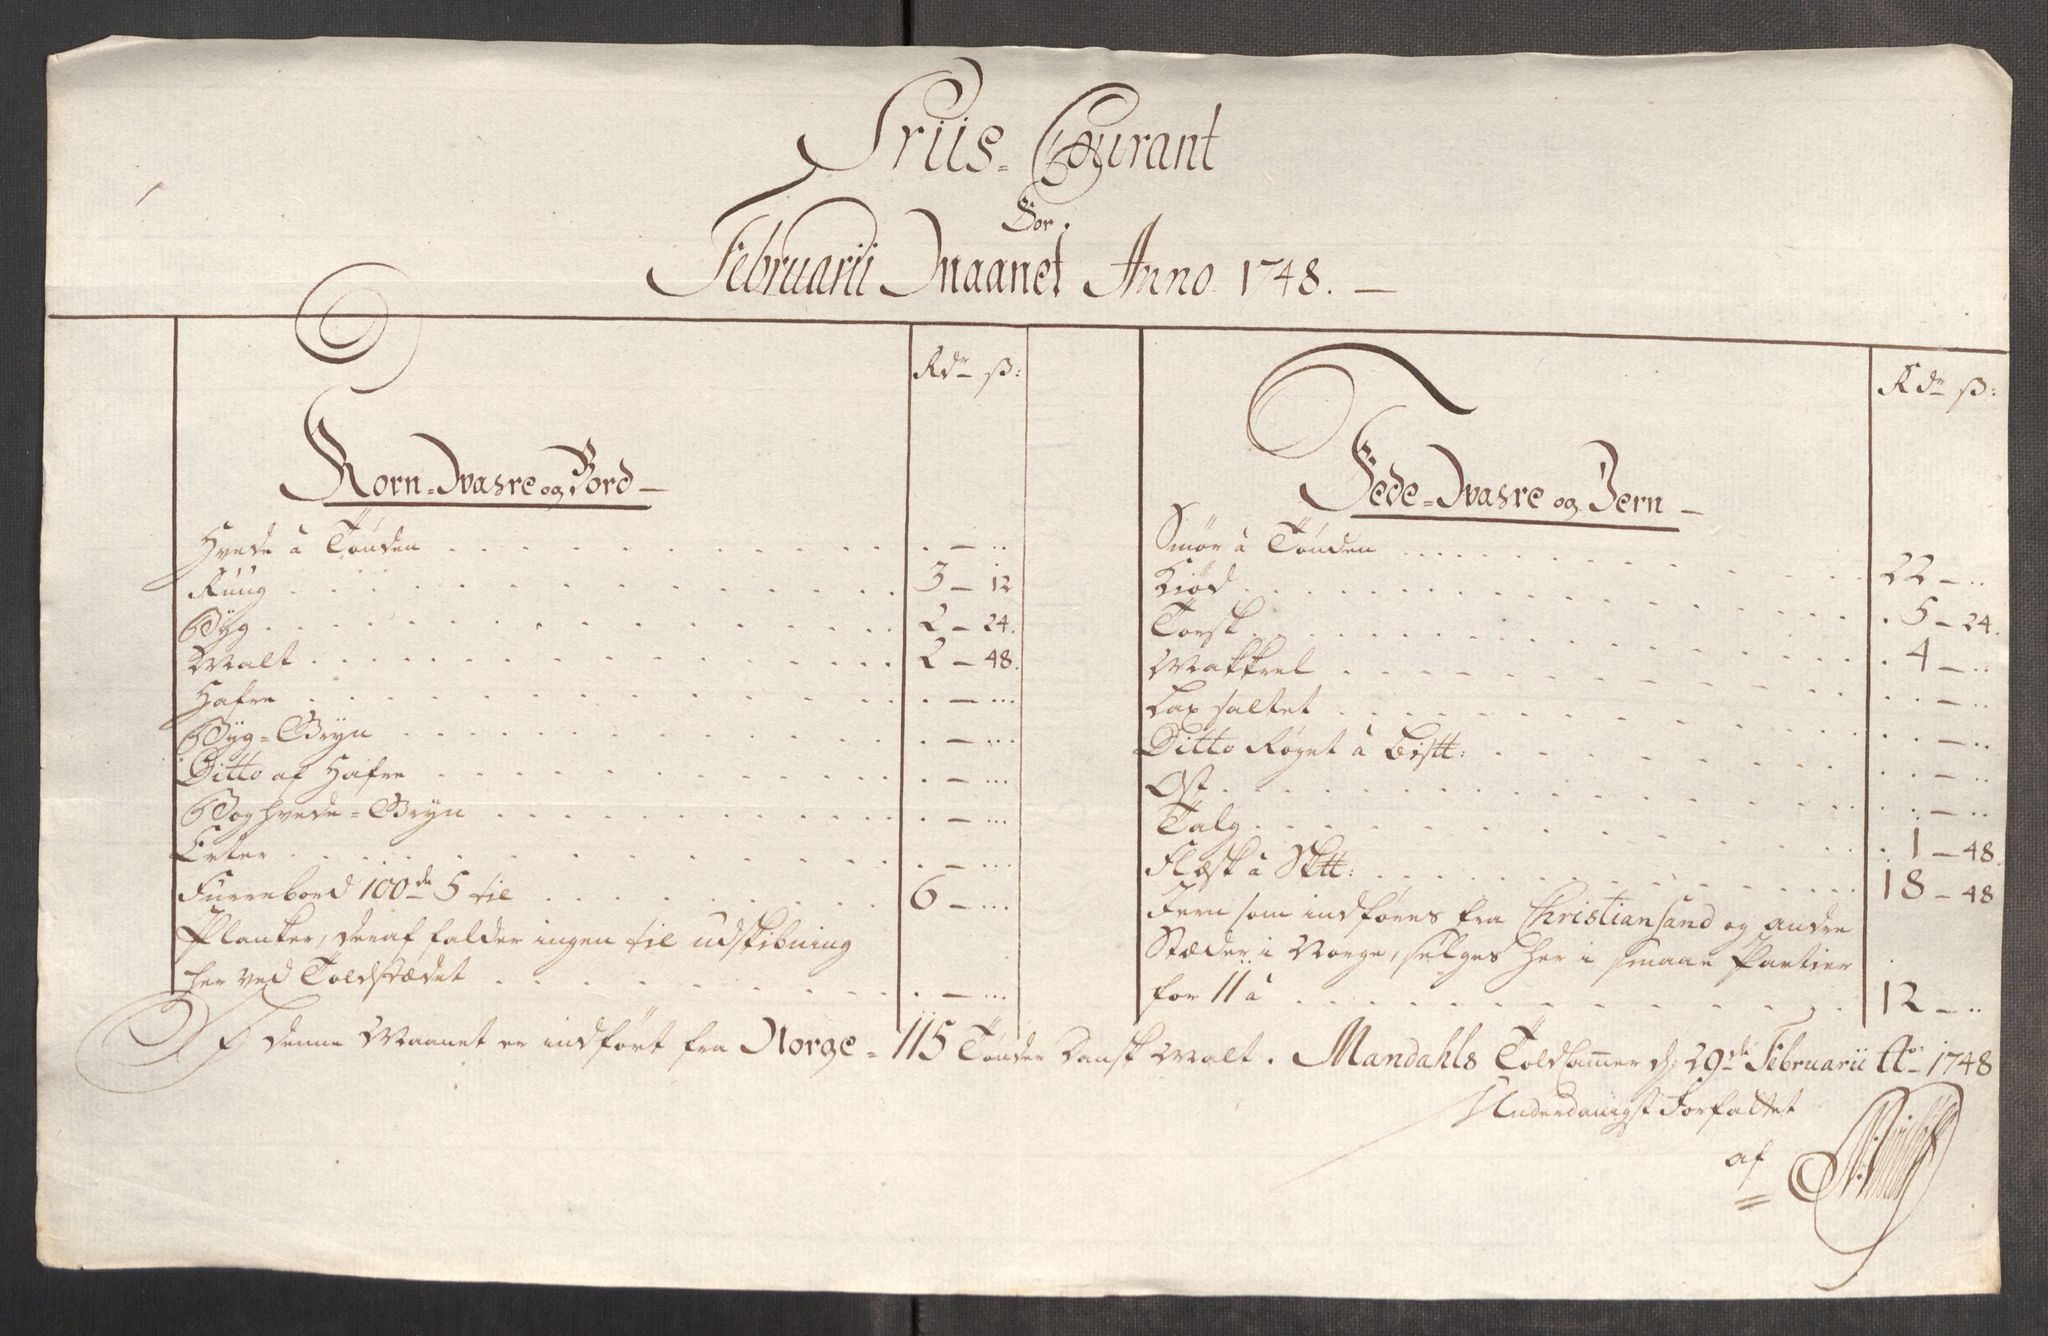 Priis-Courant
For
Februarii Maanet Anno 1748. —
Rdr ß:
Korn-Vahre og Bord —
Hvede à Tønden . . . — ..
Ruug . . . 3 — 12
Byg . . . 2 — 24.
Malt . . . 2 — 48.
Hafre . . . — ...
Byg-Gryn . . . — ...
Ditto af Hafre . . . — ...
Boghvede-Gryn . . . — ...
Erter . . . — ...
Furrebord 100de 5 til . . . 6 — ...
Planker, deraf falder ingen til udskibning
her ved Toldstædet . . . — ...
Rdr ß:
Fede-Vahre og Jern —
Smør à Tønden . . . 22 — ..
Kiød . . . 5 — 24.
Torsk . . . 4 — ..
Makkrel . . . — ..
Lax saltet . . . — ..
Ditto Røget à Bistt: . . . — ..
Ost . . . — ..
Talg . . . 1 — 48.
Flæsk à Sktt: . . . 18 — 48
Jern som indføres fra Christiansand og andre
Stæder i Norge, selges her i smaae Partier
for 11 à . . . 12 — ..
I denne Maanet er indført fra Norge - 115 Tønder Dansk Malt. Mandahls Toldkammer d: 29de Februarii Ao 1748
Underdanigst Forfattet
af